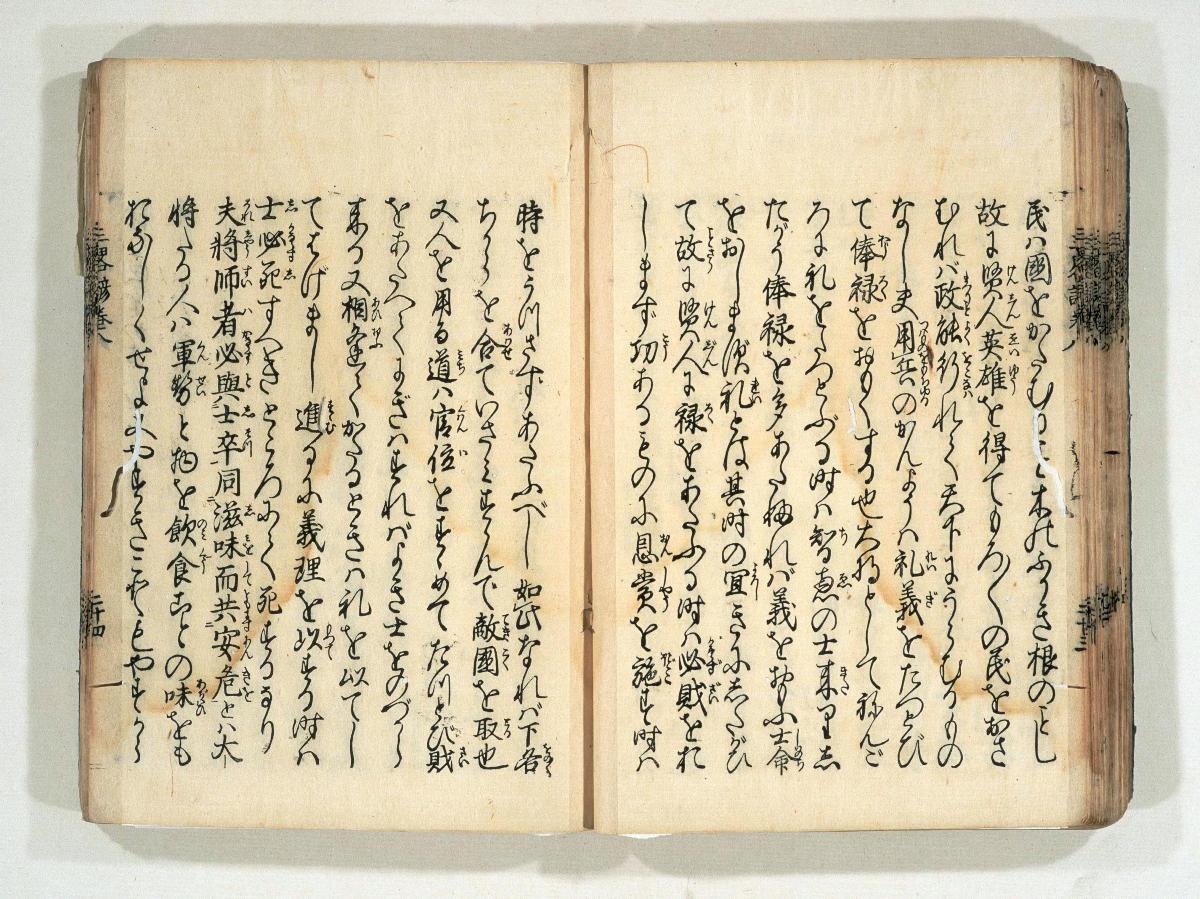 民ハ國をかたむること木のふかき根のことし
故に賢人英雄を得てもろ〳〵の民をおさ
むれバ政能行れて天下にうらむるもの
なし夫用兵のかんようハ礼義をたつとび
て俸禄をおもくする也大将として
ろに礼をたつとぶる時ハ智恵の士来り
たがう俸禄を多あたゆれバ義をおもふ士命
をおしまず礼とは其時の宜きにしたがひ
て故に賢人に禄をあたふる時ハ必財をお
しまず功あるものに恩賞を施す時ハ
時をうつさずあたふべし如此なれバ下各
ちからを合ていさみすゝんで敵國を取也
又人を用る道ハ官位をすゝめてたつとび財
をあたへてにぎハすれバよき士をのづから
来り又相逢てかたるときハ礼を以てし
てはげまし進るに義理を以する時ハ
士必死すへきところにて死するなり
夫將師者必與士卒同滋味而共安危とハ大
將たる人ハ軍勢と物を飲食するの味をも
おなしくせよ又やすきこともやすから
三畧諺巻八
二十四
二十三